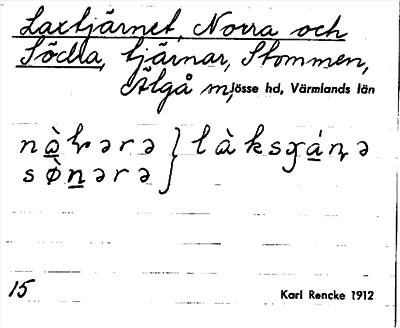 Laxtjärnet, Norra och
Södra, tjärnar, Stommen,
Älgå m, Jösse hd, Värmlands län
nàƕərə } làksɣáɳə
sø̀nərə
15
Karl Rencke 1912